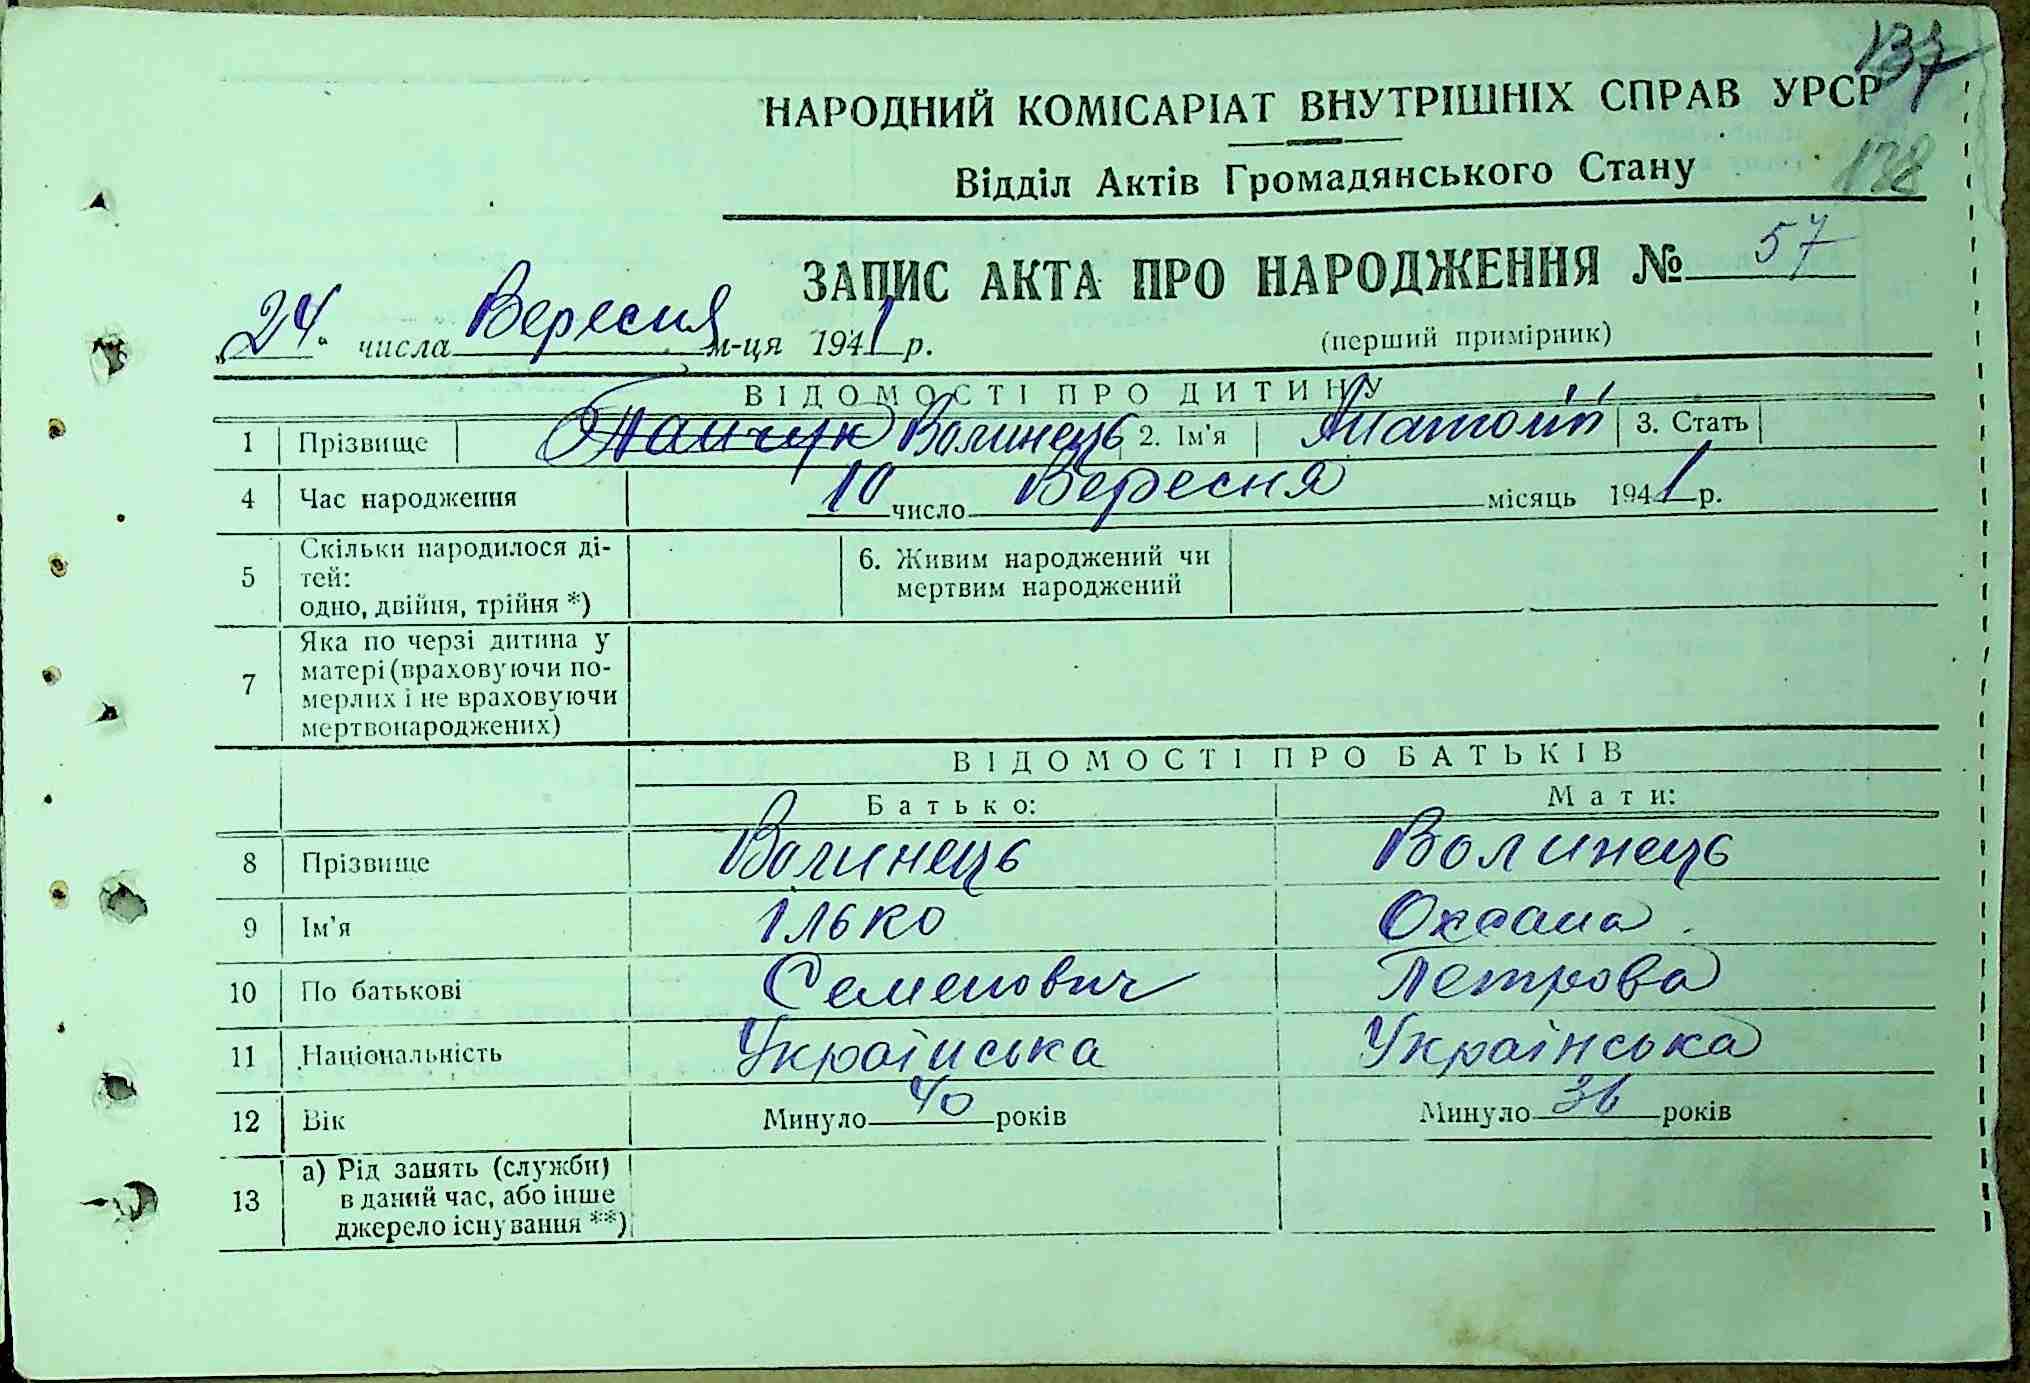 137
НАРОДНИЙ КОМІСАРІАТ ВНУТРІШНІХ СПРАВ УРСР
138
Відділ Актів Громадянського Стану
ЗАПИС АКТА ПРО НАРОДЖЕННЯ № 57
„24“ числа Вересня м-ця 1941 р. (перший примірник)
ВІДОМОСТІ ПРО ДИТИНУ
1 Прізвище Волинець 2. Ім'я Анатолій 3. Стать
4 Час народження 10 число Вересня місяць 1941 р.
5 Скільки народилося ді-
тей:
одно, двійня, трійня *)
6. Живим народжений чи
мертвим народжений
7 Яка по черзі дитина у
матері (враховуючи по-
мерлих і не враховуючи
мертвонароджених)
ВІДОМОСТІ ПРО БАТЬКІВ
Батько: Мати:
8 Прізвище Волинець Волинець
9 Ім'я Ілько Оксана
10 По батькові Семенович Петрова
11 Національність Українська Українська
12 Вік Минуло 40 років Минуло 36 років
13 а) Рід занять (служби)
в даний час, або інше
джерело існування **)